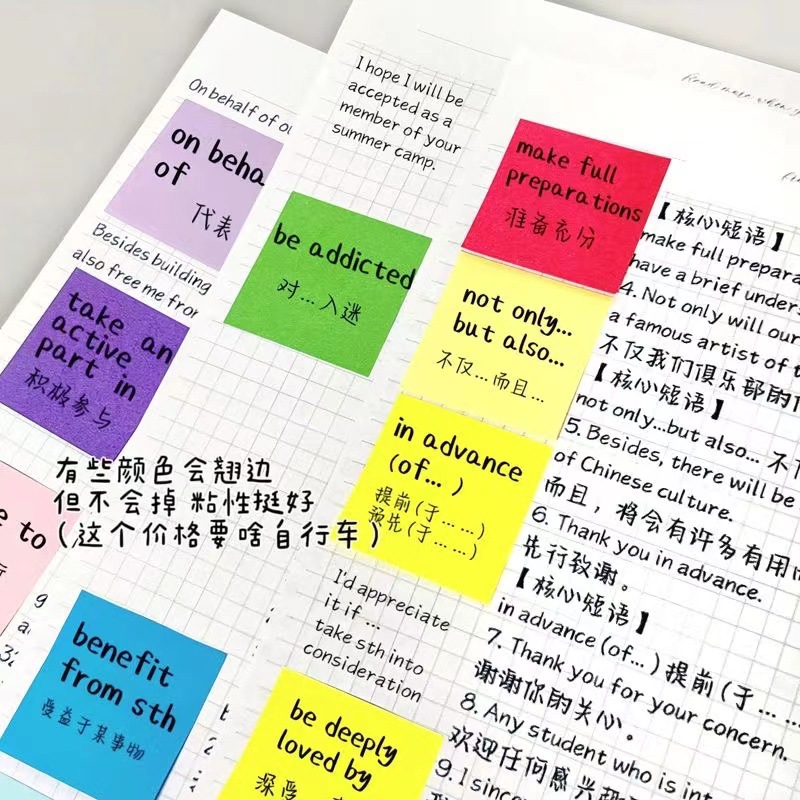 On behalf of
on beha
of
代表
Besides building
also free me fro
take an
active
part in
积极参与
e to
benefit
from sth
受益于某事物
I hope I will be
accepted as a
member of your
summer camp.
be addicted
对...入迷
有些颜色会翘边
但不会掉 粘性挺好
(这个价格要啥自行车)
make full
preparations
准备充分
not only...
but also...
不仅...而且...
in advance
(of... )
提前(于... ...)
预先(于... ...)
I'd appreciate
it if ...
take sth into
consideration
be deeply
loved by
深受
Read more when
【核心短语】
make full prepara
have a brief unders
4. Not only will our
a famous artist of t
不仅我们俱乐部的
【核心短语】
not only...but also... 不
5. Besides, there will be
of Chinese culture.
而且，将会有许多有用
6. Thank you in advance.
先行致谢。
【核心短语】
in advance (of... ) 提前(于... ...
7. Thank you for your concern.
谢谢你的关心。
8. Any student who is int
欢迎任何感兴趣
9. I since